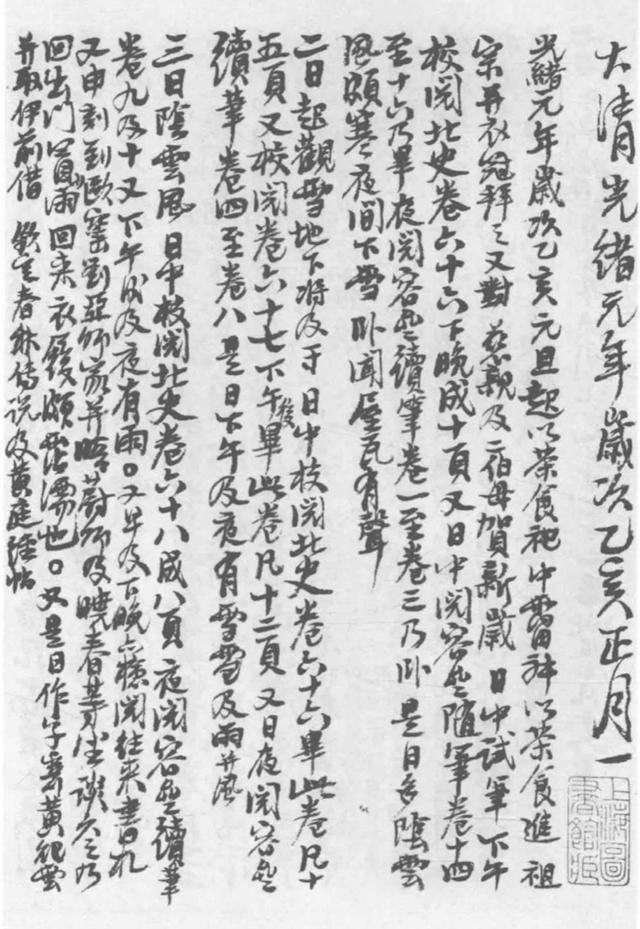 大清光緒元年歲次乙亥正月一
上海圖書館藏
光緒元年歲次乙亥元旦起以茶食祀中霤神以茶食進 祖
宗并衣冠拜之又對 慈親及二伯母賀新歲 日中試筆 下午
校閱北史卷六十六下晚成十頁又日中閱容齋隨筆卷十四
至十六乃畢夜閱容齋續筆卷一至卷三乃卧 是日多陰雲
風頗寒夜間下雪 卧聞屋瓦有聲
二日起觀雪地下將及寸 日中校閱北史卷六十六畢此卷凡十
五頁又校閱卷六十七下午後畢此卷凡十二頁 又日夜閱容齋
續筆卷四至卷八 是日下午及夜有雪雪及雨并風
三日陰雲風 日中校閱北史卷六十八成八頁 夜閱容齋續筆
卷九及十 又下午後及夜有雨 又早及下晚亦檢閱往來書札
又申刻到 劉亞師家并晤 師及曉春等坐談久之乃
回出門冒雨回來衣履頗霑濡也 又是日作字 黃
并取伊前借 欽定春秋傳說及黃庭經帖